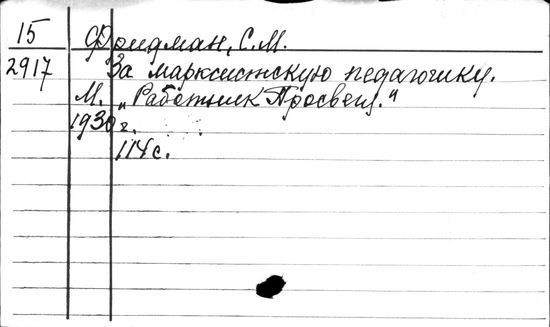 15 Фридман, С.М.
2917 За марксистскую педагогику.
М. „Работник Просвещ."
1930 г.
114 с.